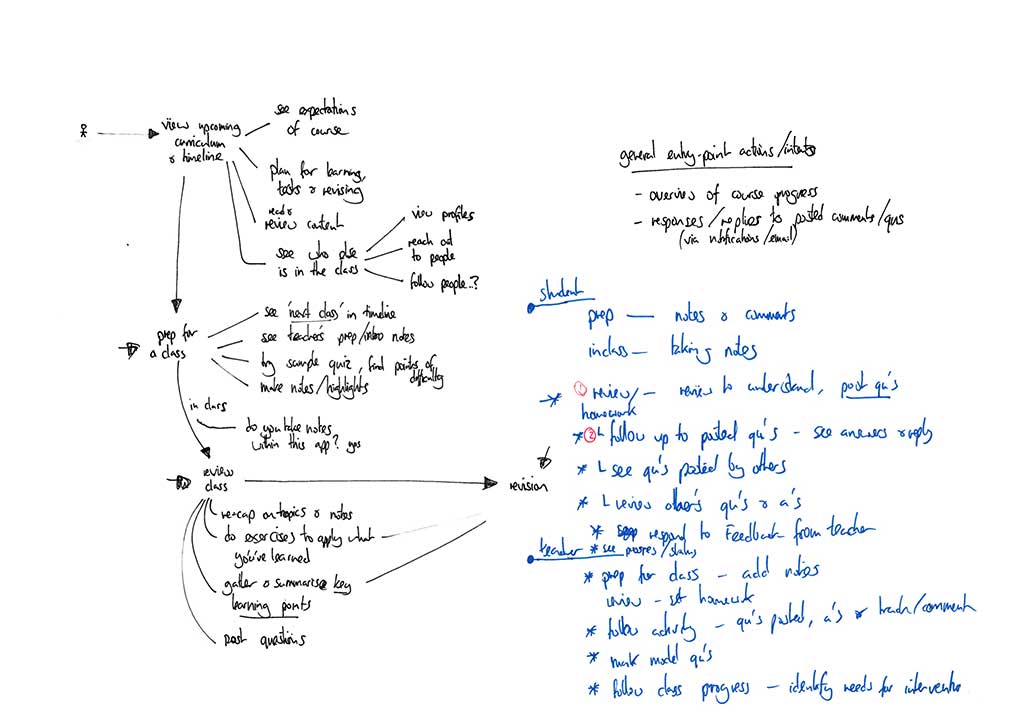 view upcoming
curriculum
& timeline
see expectations
of course
plan for learning,
tests & revising
read &
review content
see who else
is in the class
view profiles
reach out
to people
follow people..?
prep for
a class
see 'next class' in timeline
see teacher's prep/intro notes
try sample quiz, find points of
difficulty
make notes/highlights
in class
do you take notes
within this app? yes
review
class
revision
re-cap on topics & notes
do exercises to apply what
you've learned
gather & summarise key
learning points
post questions
general entry-point actions/intents
- overview of course progress
- responses/replies to posted comments/qus
(via notifications/email)
student
prep — notes & comments
inclass — taking notes
* ① review/ — review to understand, post qu's
homework
* ② L follow up to posted qu's - see answers & reply
* L see qu's posted by others
* L review other's qu's & a's
* respond to Feedback from teacher
teacher * see progress/status
* prep for class - add notes
review - set homework
* follow activity - qu's posted, a's & track/comment
* mark model qu's
* follow class progress - identify needs for